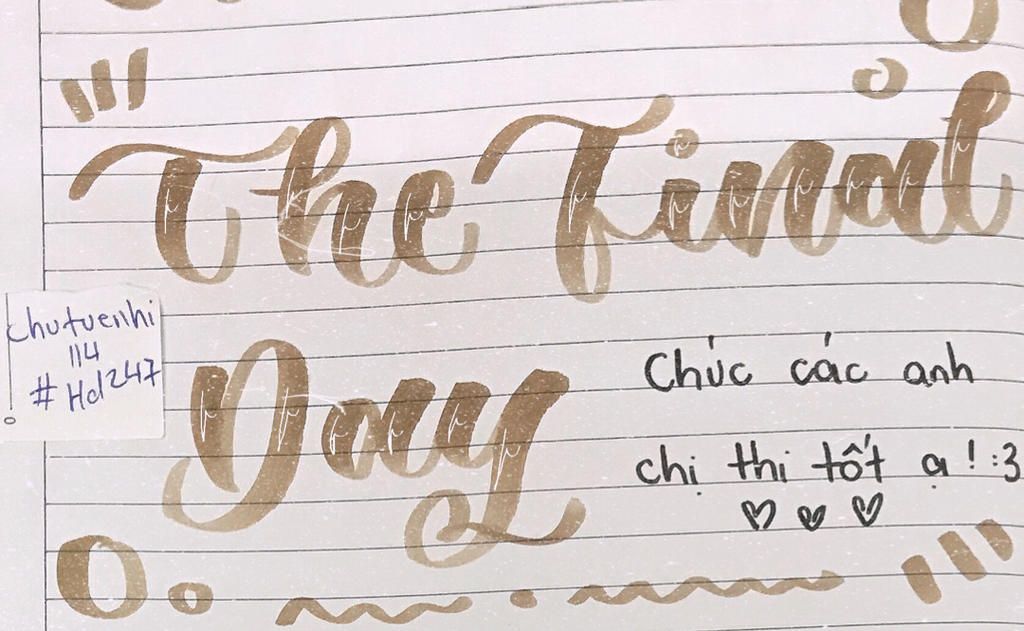 The Final
Day
chutuenhi
114
#Hd247
Chúc các anh
chị thi tốt ạ! :3